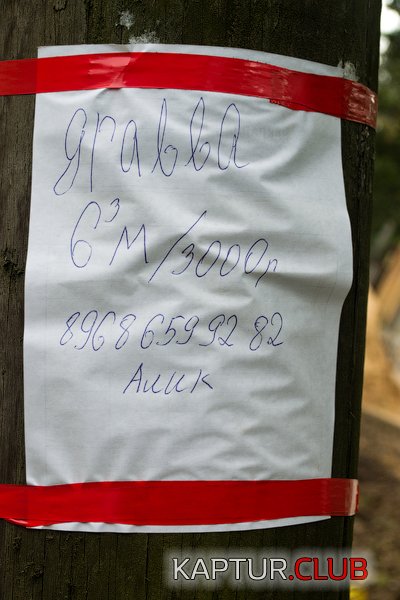 дравва
6³м/3000р
8968 659 92 82
Алик
KAPTUR.CLUB